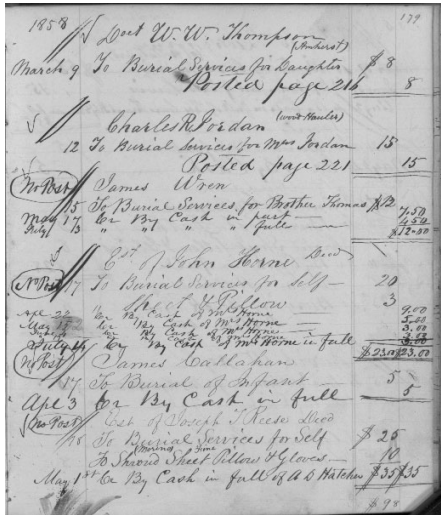 179
1858 Doct W. W. Thompson
(Amherst)
March 9 To Burial Services for Daughter $8
Posted page 216 8
Charles R Jordan (wood Hauler)
12 To Burial Services for Mrs Jordan 15
Posted page 221 15
No Post James Wren
15 To Burial Services for Brother Thomas $12
May 17 Cr By Cash in part 7.50
July 13 " " " " full 4.50
$12.00
Est of John Horne Decd
No Post 17 To Burial Services for Self 20
Sheet & Pillow 3
Apr 22 Cr By Cash of Mrs Horne 9.00
May Cr By Cash of Mrs Horne 5.00
Cr By Cash of Mrs Horne 3.00
July Cr By Cash of Mrs Horne in full
$23.00 $23.00
No Post James Callahan
17 To Burial of Infant 5
Apl 3 Cr By Cash in full 5
No Post Est of Joseph T Reese Decd
To Burial Services for Self $25
To Shroud Sheet Pillow & Gloves 10
May 1st Cr By Cash in full of A D Hatcher $35 $35
$98